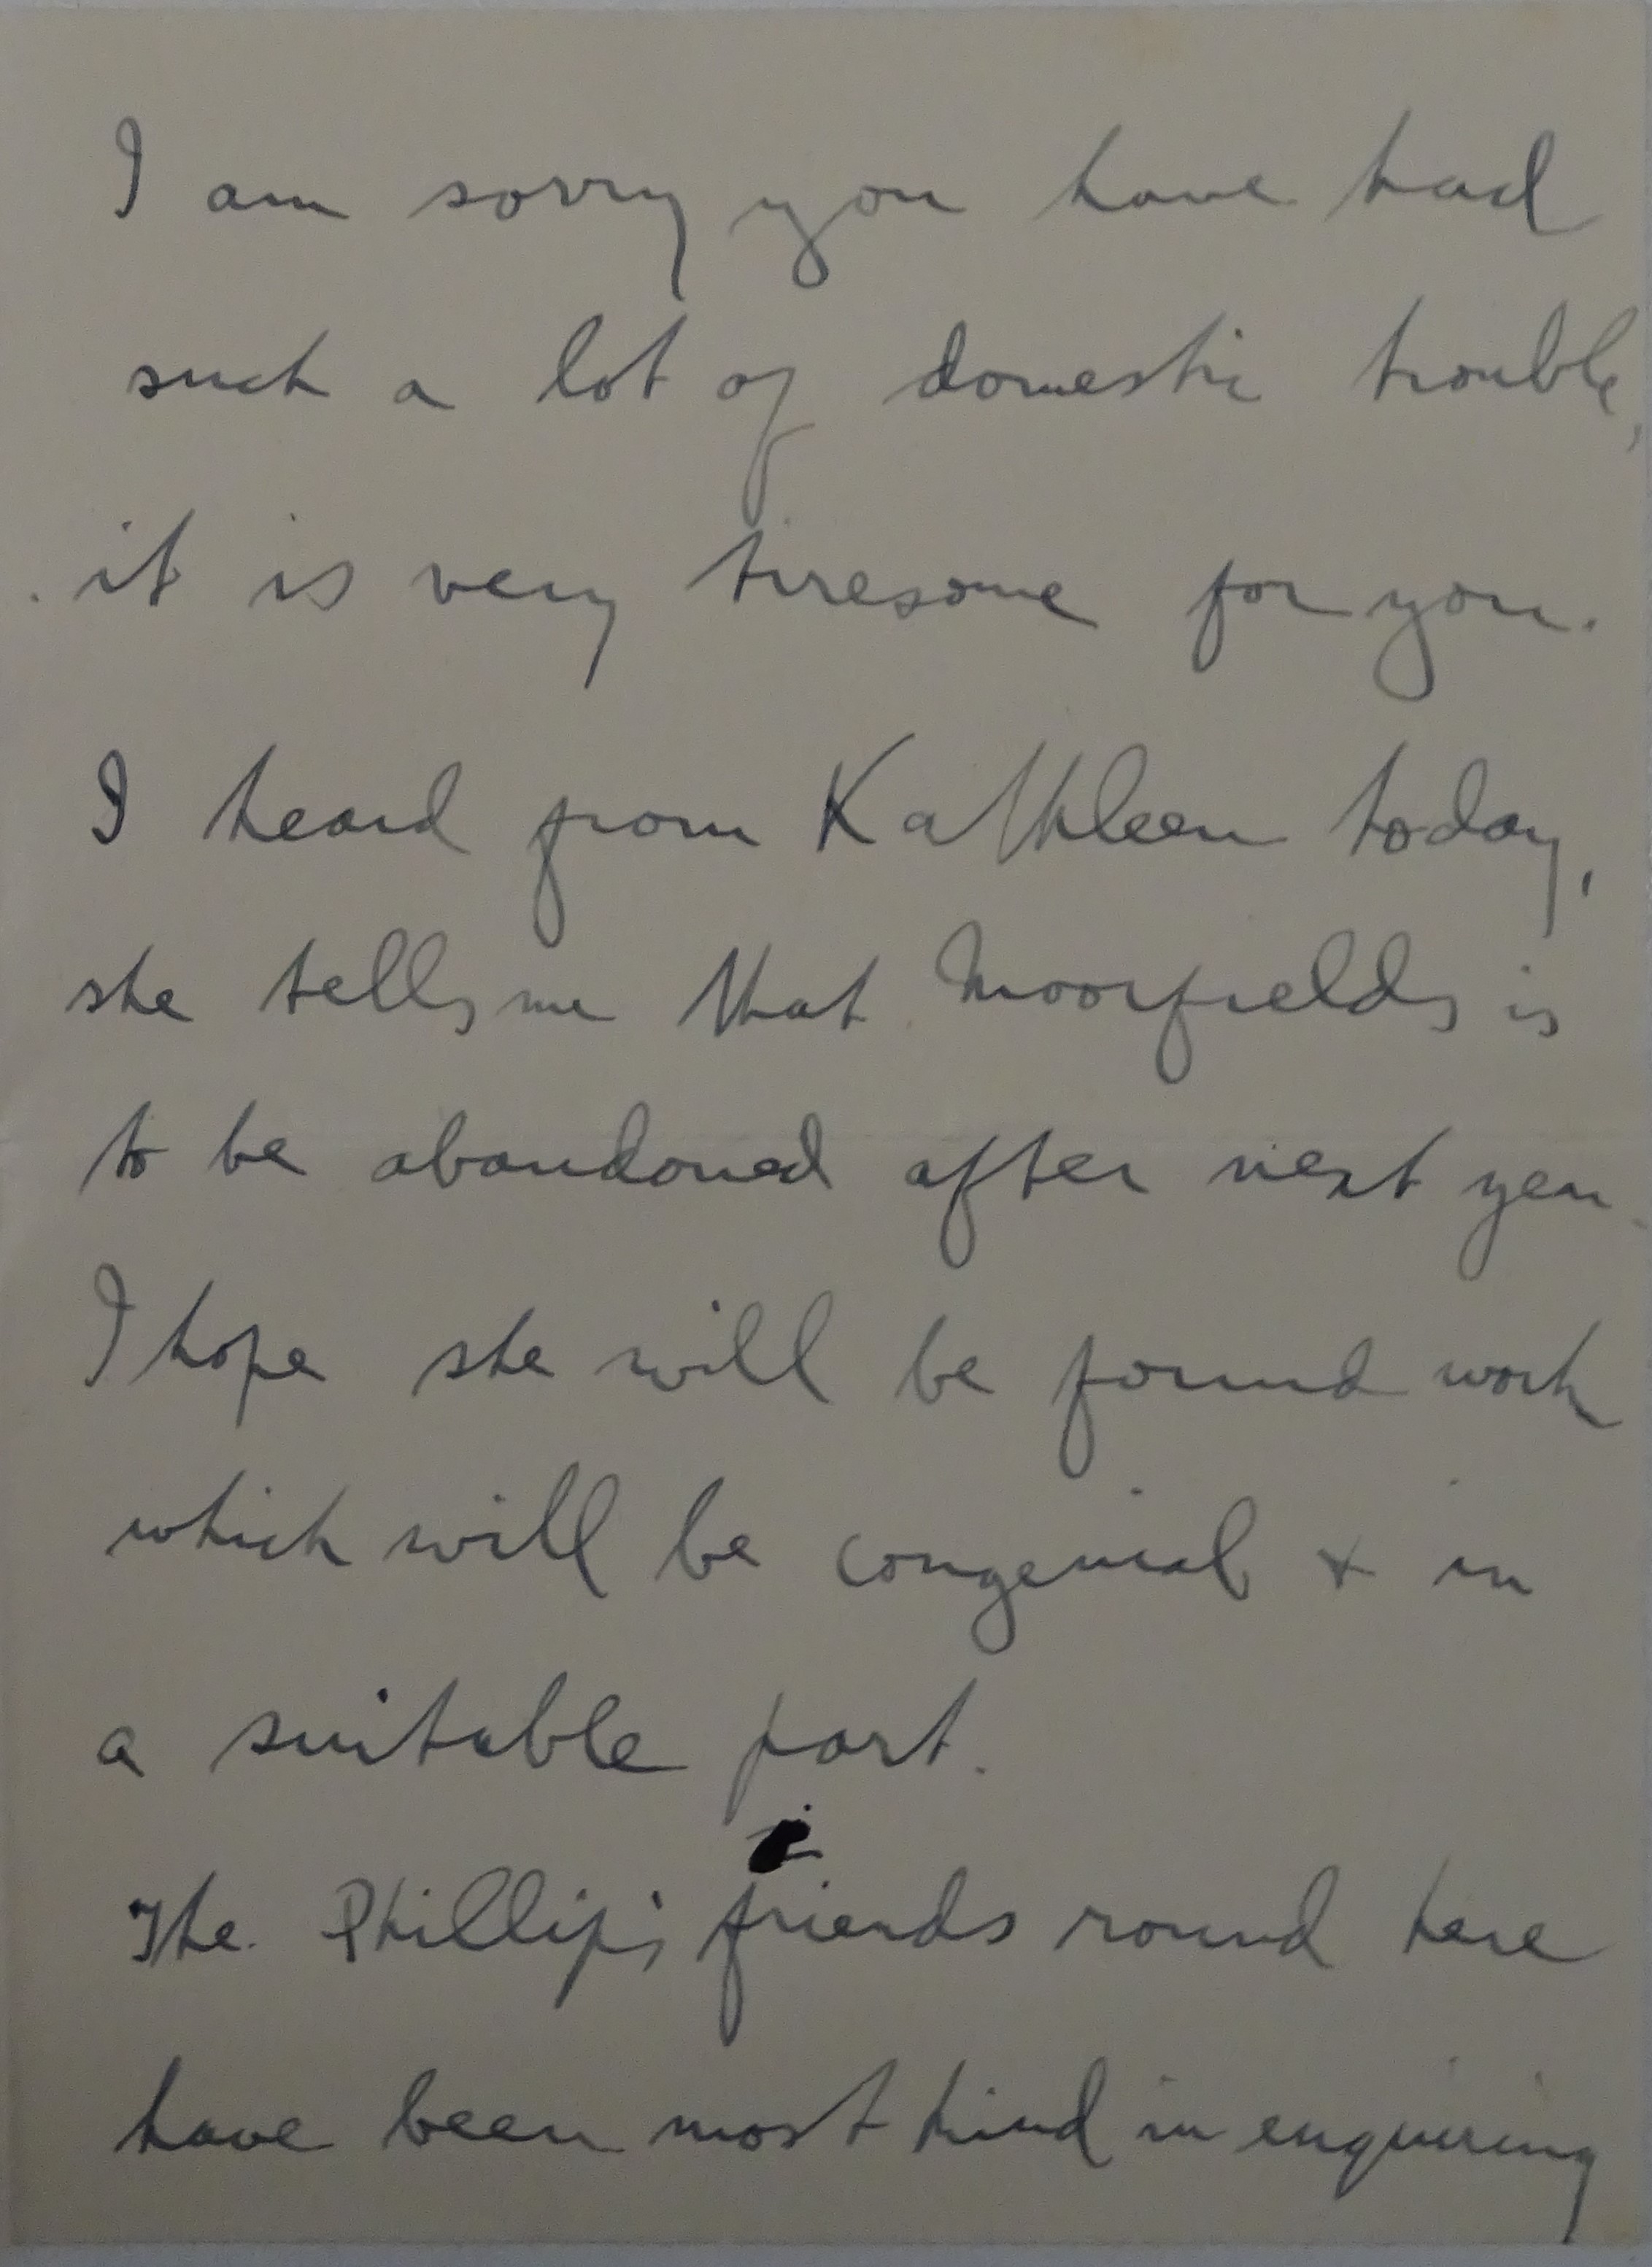 I am sorry you have had
such a lot of domestic trouble,
it is very tiresome for you.
I heard from Kathleen today,
she tells me that Moorfields is
to be abandoned after next year.
I hope she will be found work
which will be congenial & in
a suitable part.
The Phillips friends round here
have been most kind in enquiring